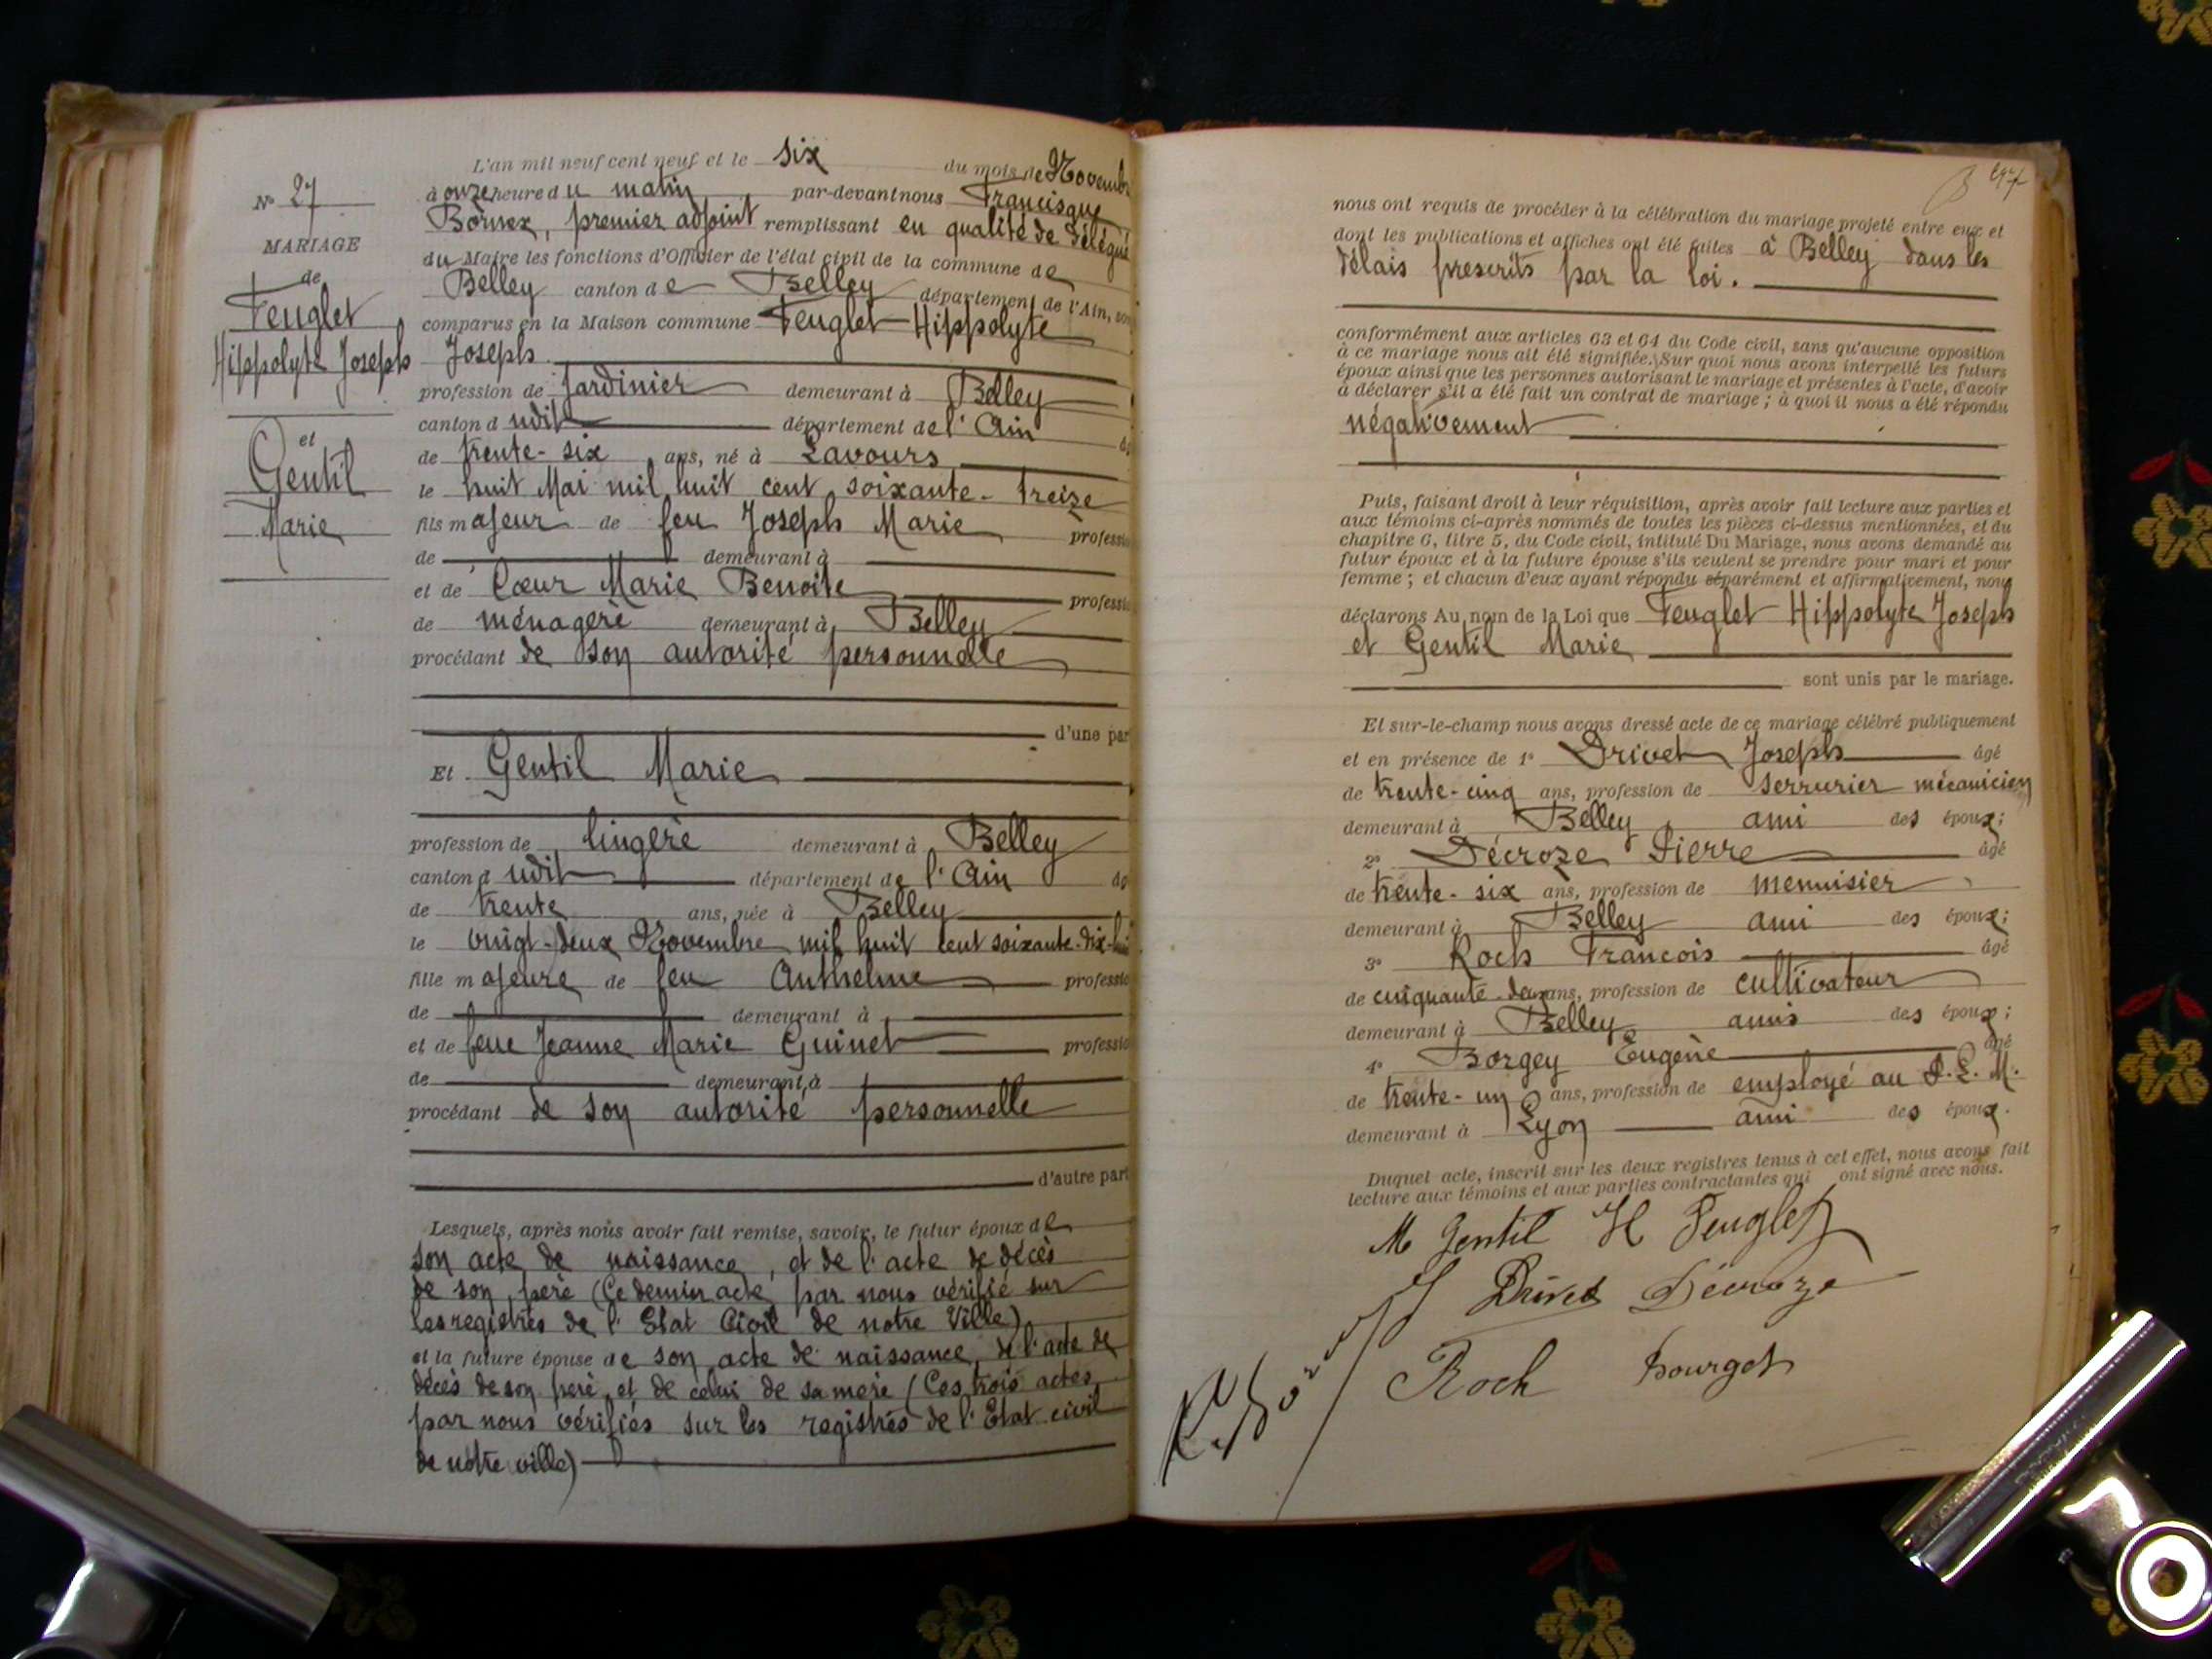 N° 27
MARIAGE
de
Feuglet
Hippolyte Joseph
et
Gentil
Marie
L'an mil neuf cent neuf et le six du mois de Novembre
à onze heure du matin par-devant nous Francisque
Bornex, premier adjoint remplissant en qualité de Délégué
du Maire les fonctions d'Officier de l'état civil de la commune de
Belley canton de Belley département de l'Ain, son
comparus en la Maison commune Feuglet Hippolyte
Joseph
profession de Jardinier demeurant à Belley
canton dudit département de l'Ain
de trente-six ans, né à Lavours
le huit Mai mil huit cent soixante-treize
fils majeur de feu Joseph Marie professio
de demeurant à
et de Cœur Marie Benoite professio
de ménagère demeurant à Belley
procédant de son autorité personnelle
d'une par
Et Gentil Marie
profession de lingère demeurant à Belley
canton dudit département de l'Ain
de trente ans, née à Belley
le vingt-deux Novembre mil huit cent soixante-dix-hui
fille majeure de feu Anthelme professio
de demeurant à
et de feue Jeanne Marie Guinet professio
de demeurant à
procédant de son autorité personnelle
d'autre part
Lesquels, après nous avoir fait remise, savoir, le futur époux de
son acte de naissance, et de l'acte de décès
de son père (Ce dernier acte par nous vérifié sur
les registres de l'Etat Civil de notre Ville)
et la future épouse de son acte de naissance, de l'acte de
décès de son père et de celui de sa mère (Ces trois actes
par nous vérifiés sur les registres de l'Etat civil
de notre ville)
nous ont requis de procéder à la célébration du mariage projeté entre eux et
dont les publications et affiches ont été faites à Belley dans les
délais prescrits par la loi.
conformément aux articles 63 et 64 du Code civil, sans qu'aucune opposition
à ce mariage nous ait été signifiée. Sur quoi nous avons interpellé les futurs
époux ainsi que les personnes autorisant le mariage et présentes à l'acte, d'avoir
à déclarer s'il a été fait un contrat de mariage ; à quoi il nous a été répondu
négativement
Puis, faisant droit à leur réquisition, après avoir fait lecture aux parties et
aux témoins ci-après nommés de toutes les pièces ci-dessus mentionnées, et du
chapitre 6, titre 5, du Code civil, intitulé Du Mariage, nous avons demandé au
futur époux et à la future épouse s'ils veulent se prendre pour mari et pour
femme ; et chacun d'eux ayant répondu séparément et affirmativement, nous
déclarons Au nom de la Loi que Feuglet Hippolyte Joseph
et Gentil Marie
sont unis par le mariage.
Et sur-le-champ nous avons dressé acte de ce mariage célébré publiquement
et en présence de 1° Drivet Joseph âgé
de trente-cinq ans, profession de serrurier mécanicien
demeurant à Belley ami des époux ;
2° Décroze Pierre âgé
de trente-six ans, profession de menuisier
demeurant à Belley ami des époux ;
3° Roch Francois âgé
de cinquante-deux ans, profession de cultivateur
demeurant à Belley amis des époux ;
4° Borgey Eugène âgé
de trente-un ans, profession de employé au P.L.M.
demeurant à Lyon ami des époux.
Duquel acte, inscrit sur les deux registres tenus à cet effet, nous avons fait
lecture aux témoins et aux parties contractantes qui ont signé avec nous.
M Gentil H Feuglet
J Drivet Décroze
Roch Bourget